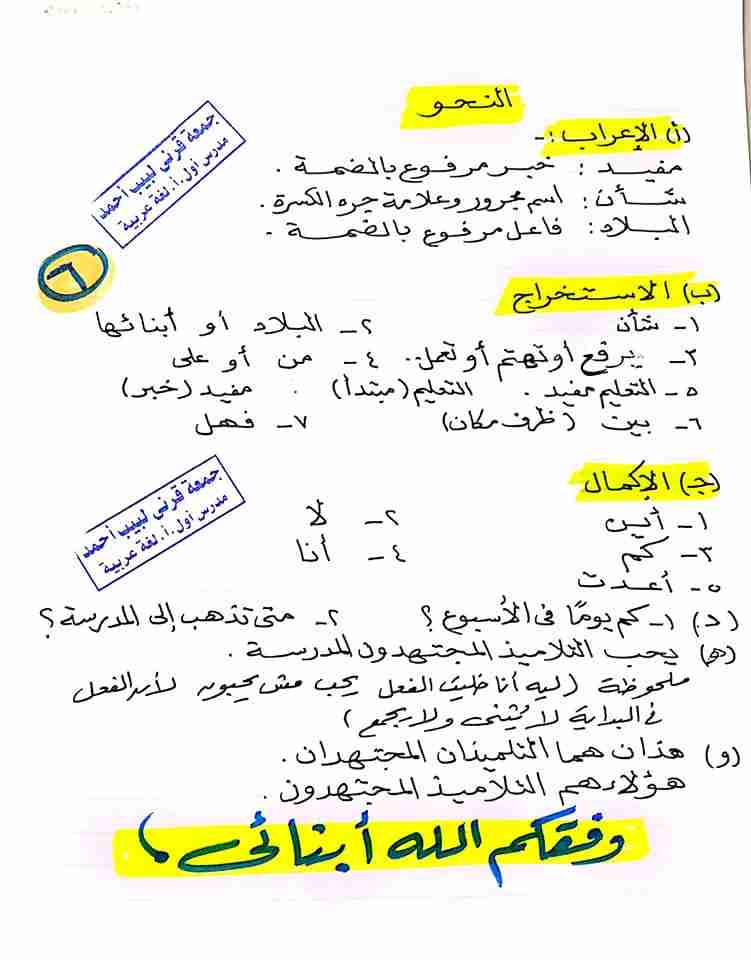 النحو
(أ) الإعراب :-
مفيد : خبر مرفوع بالضمة .
شأن : اسم مجرور وعلامة جره الكسرة .
البلاد : فاعل مرفوع بالضمة .
جمعة قرني لبيب أحمد
مدرس أول . أ . لغة عربية
٦
(ب) الاستخراج
١- شأن ٢- البلاد أو أبنائها
٣- يرفع أو تهتم أو تعمل .. ٤- من أو على
٥- التعليم مفيد . التعليم (مبتدأ) . مفيد (خبر)
٦- بين (ظرف مكان) ٧- فهل
(جـ) الإكمال
١- أين ٢- لا
٣- كم ٤- أنا
٥- أعدت
جمعة قرني لبيب أحمد
مدرس أول . أ . لغة عربية
(د) ١- كم يومًا في الأسبوع ؟ ٢- متى تذهب إلى المدرسة ؟
(هـ) يحب التلاميذ المجتهدون المدرسة .
ملحوظة (ليه أنا خليت الفعل يحب مش يحبون لأن الفعل
في البداية لا يثنى ولا يجمع)
(و) هذان هما التلميذان المجتهدان .
هؤلاء هم التلاميذ المجتهدون .
وفقكم الله أبنائي